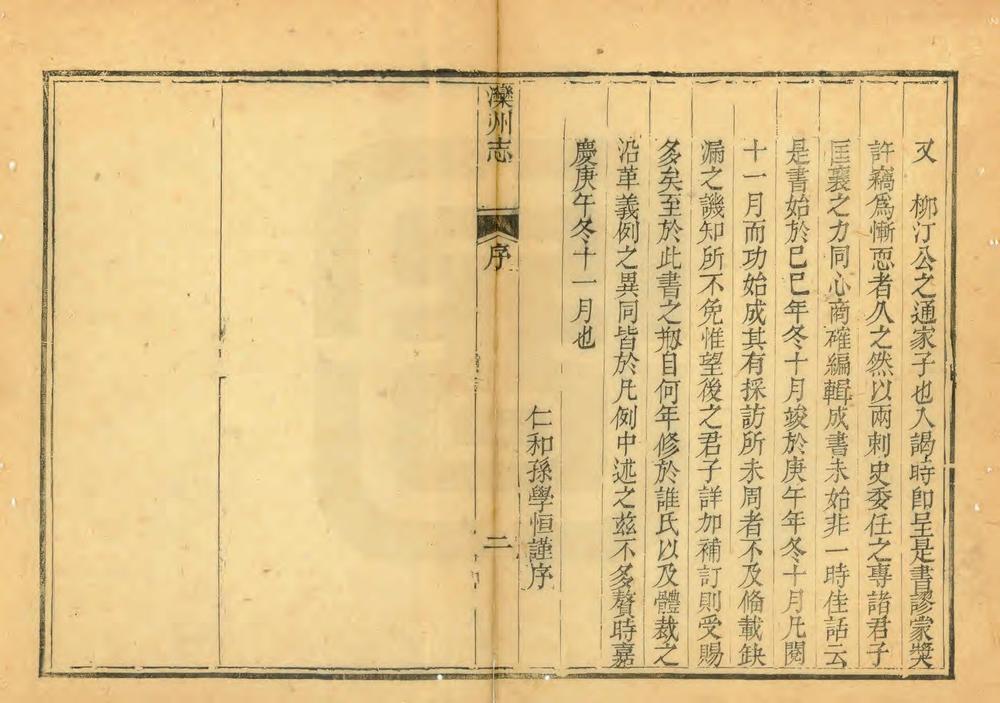 又　柳汀公之通家子也入謁時卽呈是書謬蒙奬
許竊爲慚恧者久之然以兩刺史委任之專諸君子
匡襄之力同心商確編輯成書未始非一時佳話云
是書始於己巳年冬十月竣於庚午年冬十月凡閱
十一月而功始成其有採訪所未周者不及俻載缺
漏之譏知所不免惟望後之君子詳加補訂則受賜
多矣至於此書之刱自何年修於誰氏以及體裁之
沿革義例之異同皆於凡例中述之兹不多贅時嘉
慶庚午冬十一月也
仁和孫學恒謹序
灤州志
序
二